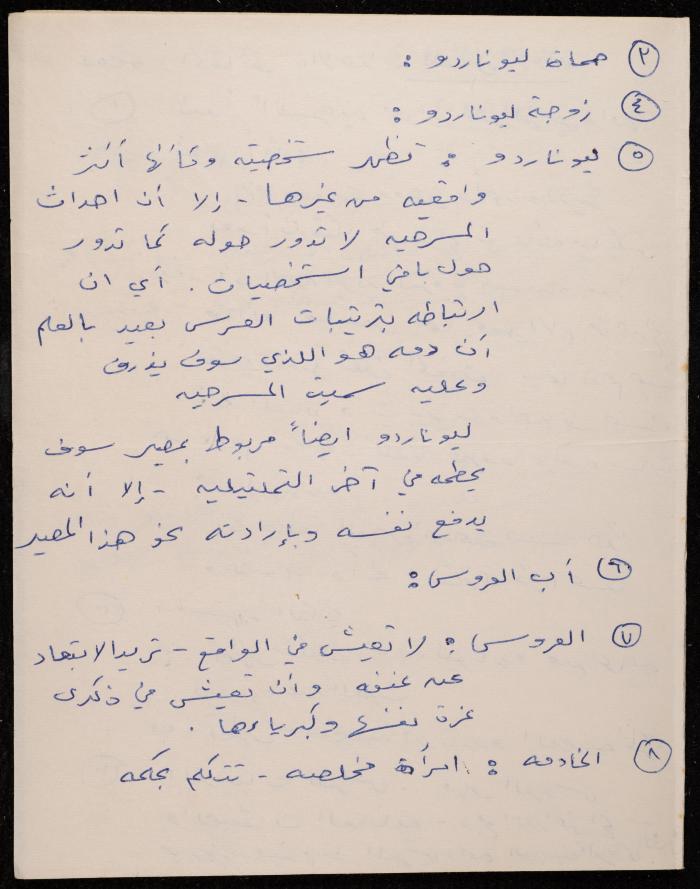 ٣ حماة ليوناردو :
٤ زوجة ليوناردو :
٥ ليوناردو : تظهر شخصيته وكأنها أكثر
واقعيه من غيرها - إلا أن احداث
المسرحيه لا تدور حوله كما تدور
حول باقي الشخصيات . أي ان
ارتباطه بترتيبات العرس بعيد بالعلم
أن دمه هو اللذي سوف يذرف
وعليه سميت المسرحيه
ليوناردو ايضاً مربوط بمصير سوف
يحطمه في آخر التمثيليه - إلا أنه
يدفع نفسه وبإرادته نحو هذا المصير
٦ أب العروس :
٧ العروس : لا تعيش في الواقع - تريد الابتعاد
عنه وأن تعيش في ذكرى
عزة نفسها وكبرياءها .
٨ الخادمه : امرأة مخلصه - تتكلم بحكمه